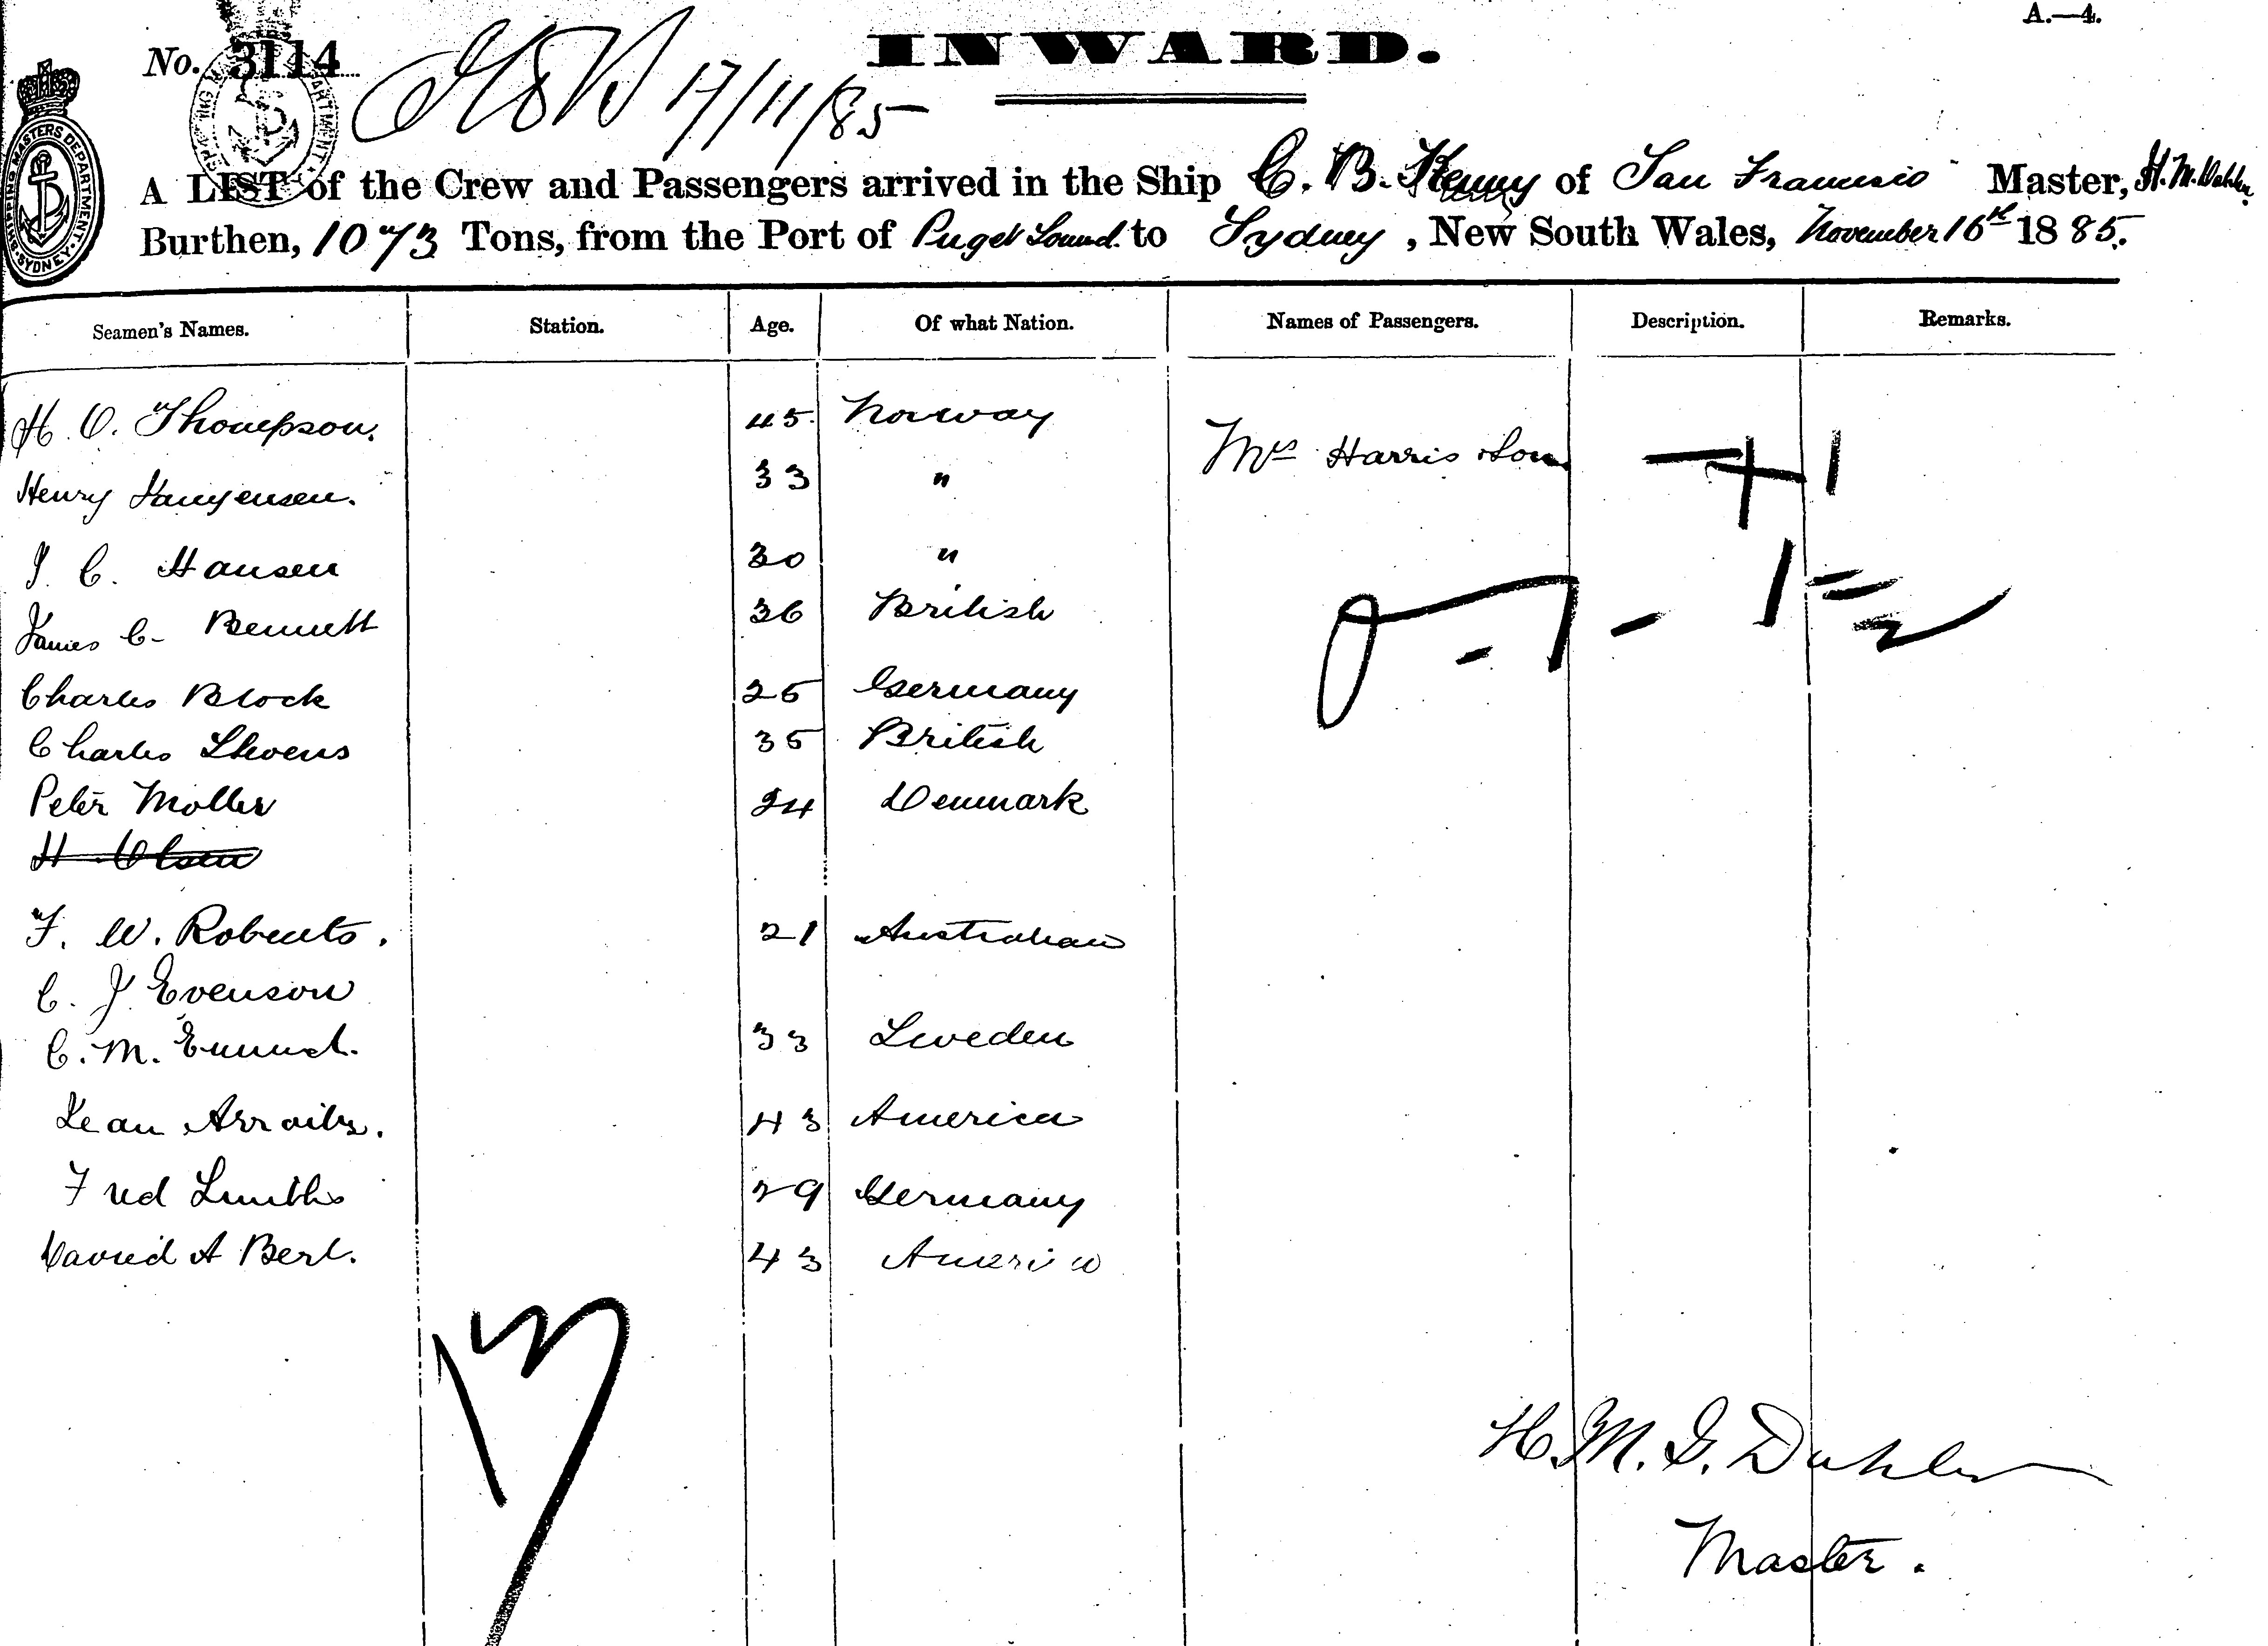 A.—4.
No. 3114
INWARD.
17/11/85
SHIPPING MASTERS DEPARTMENT SYDNEY
A LIST of the Crew and Passengers arrived in the Ship C. B. Kenny of San Francisco Master, H. M. Dahler
Burthen, 1073 Tons, from the Port of Puget Sound to Sydney, New South Wales, November 16th 1885.
Seamen's Names. Station. Age. Of what Nation. Names of Passengers. Description. Remarks.
H. O. Thompson. 45. Norway
Mrs Harris Son
Henry 33 "
C. Hansen 30 "
James C- Bennett 36 British
Charles Block 25 Germany
Charles Stevens 35 British
Peter Moller 24 Denmark
H Olsen
F. W. Roberts. 21 Australian
C. J Evenson
C. M. 33 Sweden
43 America
Fred 29 Germany
David A 43 America
13
H. M. G. Dahler
Master.